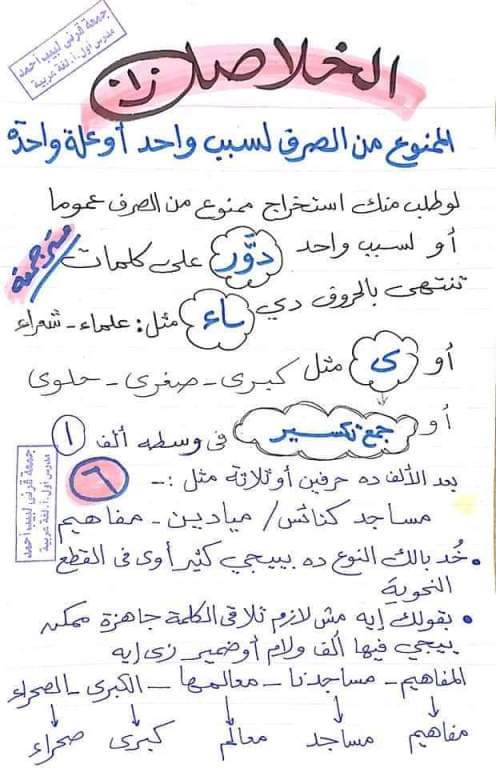 جمعة قرني لبيب أحمد
مدرس أول أ. لغة عربية
الخلاصة
الممنوع من الصرف لسبب واحد أوعلة واحدة
لو طلب منك استخراج ممنوع من الصرف عموما
أو لسبب واحد دوّر على كلمات
مترجمة
تنتهى بالحروف دي
ـاء مثل: علماء - شعراء
أو ى مثل كبرى - صغرى - حلوى
أو جمع تكسير فى وسطه ألف ا
بعد الألف ده حرفين أو ثلاثة مثل :-
٦
مساجد كنائس / ميادين - مفاهيم
جمعة قرني لبيب أحمد
مدرس أول أ. لغة عربية
• خُد بالك النوع ده بييجي كثير أوى فى القطع
النحوية
• بقولك إيه مش لازم تلاقى الكلمة جاهزة ممكن
ييجي فيها ألف ولام أو ضمير زى إيه
المفاهيم - مساجدنا - معالمها - الكبرى - الصحراء
مفاهيم مساجد معالم كبرى صحراء